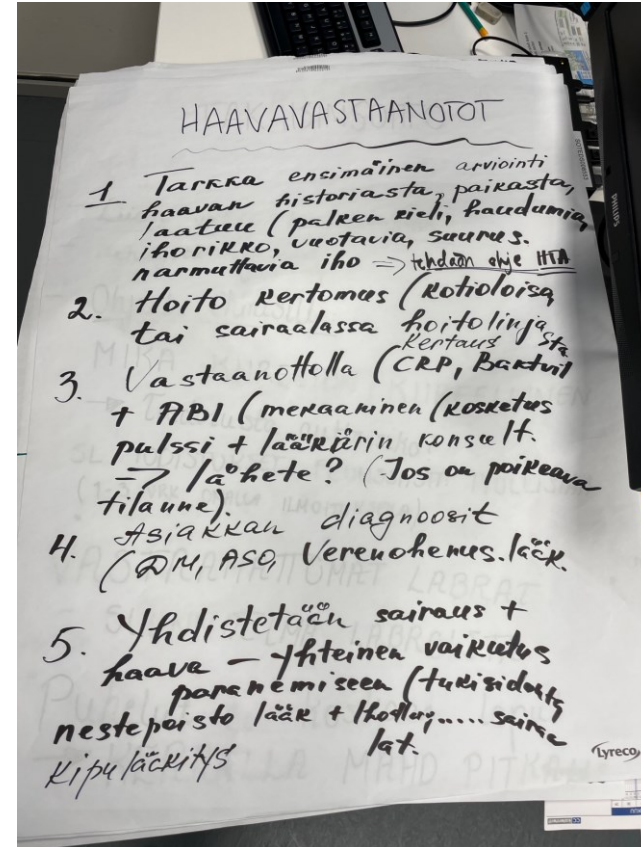 HAAVAVASTAANOTOT
1 Tarkka ensimäinen arviointi
haavan historiasta, paikasta,
laatuu (palken kieli, haudumia,
ihorikko, vuotavia, suurus.
narmuttavia iho => tehdään ohje HTA
2. Hoito kertomus (kotioloisa
tai sairaalassa hoitolinja
Kertaus sta
3. Vastaanottolla (CRP, Baktvil
+ ABI (mekaaninen (kosketus
pulssi + lääkärin konsult.
=> lähete? (Jos on poikeava
tilaune).
4. Asiakkan diagnoosit
(DM, ASO, Verenohenus.lääk.
5. Yhdistetään sairaus +
haava - Yhteinen vaikutus
paranemiseen (tukisidosta
nestepoisto lääk + ..... saira
lat.
Kipulääkitys
Lyreco
PHILIPS
MIKÄ
LABRAT
MAHD PITKÄ